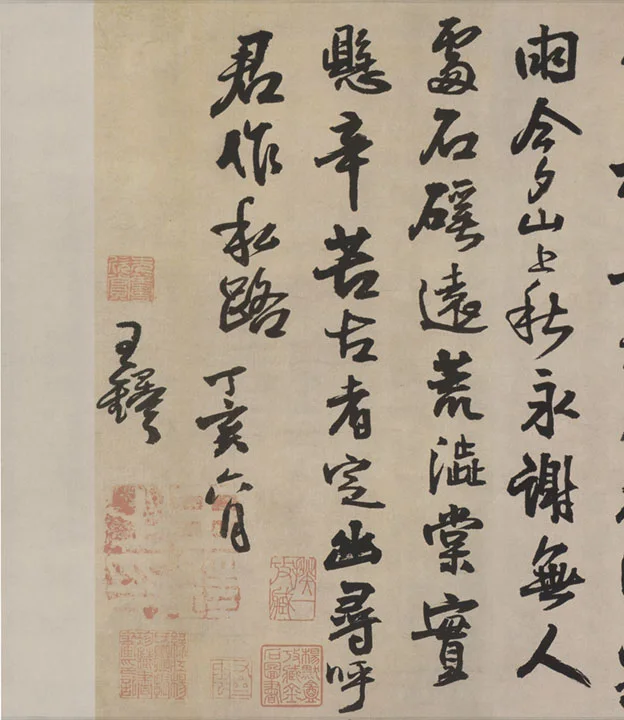 雨今夕山上秋永謝無人
處石磎遠荒澁棠實
懸辛苦古者定幽尋呼
君作私路
丁亥六月
王鐸